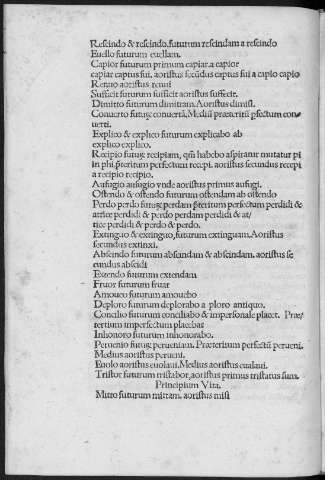 Rescindo & rescindo. futurum rescindam a rescindo
Euello futurum euellam.
Capior futurum primum capiar. a capior
capiar captus sui. aoristus secūdus captus sui a capio capio
Renuo aoristus renui
Sufficit futurum sufficit aoristus suffecit.
Dimitto futurum dimittam. Aoristus dimisi.
Conuerto futuꝝ conuertā. Mediū præteritū ꝑfectum con⸗
uerti.
Explico & explico futurum explicabo ab
explico explico.
Recipio futuꝝ recipiam, qm̄ habebo aspiratur mutatur pi
in phi. p̄teritum perfectum recepi. aoristus secundus recepi
a recipio recipio.
Aufugio aufugio vnde aoristus primus aufugi.
Ostendo & ostendo futurum ostendam ab ostendo
Perdo perdo futuꝝ perdam p̄teritum perfectum perdidi &
attice perdidi & perdo perdam perdidi & at/
tice perdidi & perdo & perdo.
Extinguo & extinguo, futurum extinguam. Aoristus
secundus extinxi.
Abscindo futurum abscindam & abscindam. aoristus se
cundus abscidi
Extendo futurum extendam
Fruor futurum fruar
Amoueo futurum amouebo
Deploro futurum deplorabo a ploro antiquo.
Concilio futurum conciliabo & impersonale placet. Præ⸗
teritum imperfectum placebat
Inhonoro futurum inhonorabo.
Peruenio futuꝝ perueniam. Præteritum perfectū perueni.
Medius aoristus perueni.
Euolo aoristus euolaui. Medius aoristus euolaui.
Tristor futurum tristabor, aoristus primus tristatus sum.
Principium Vita.
Mitto futurum mittam. aoristus misi